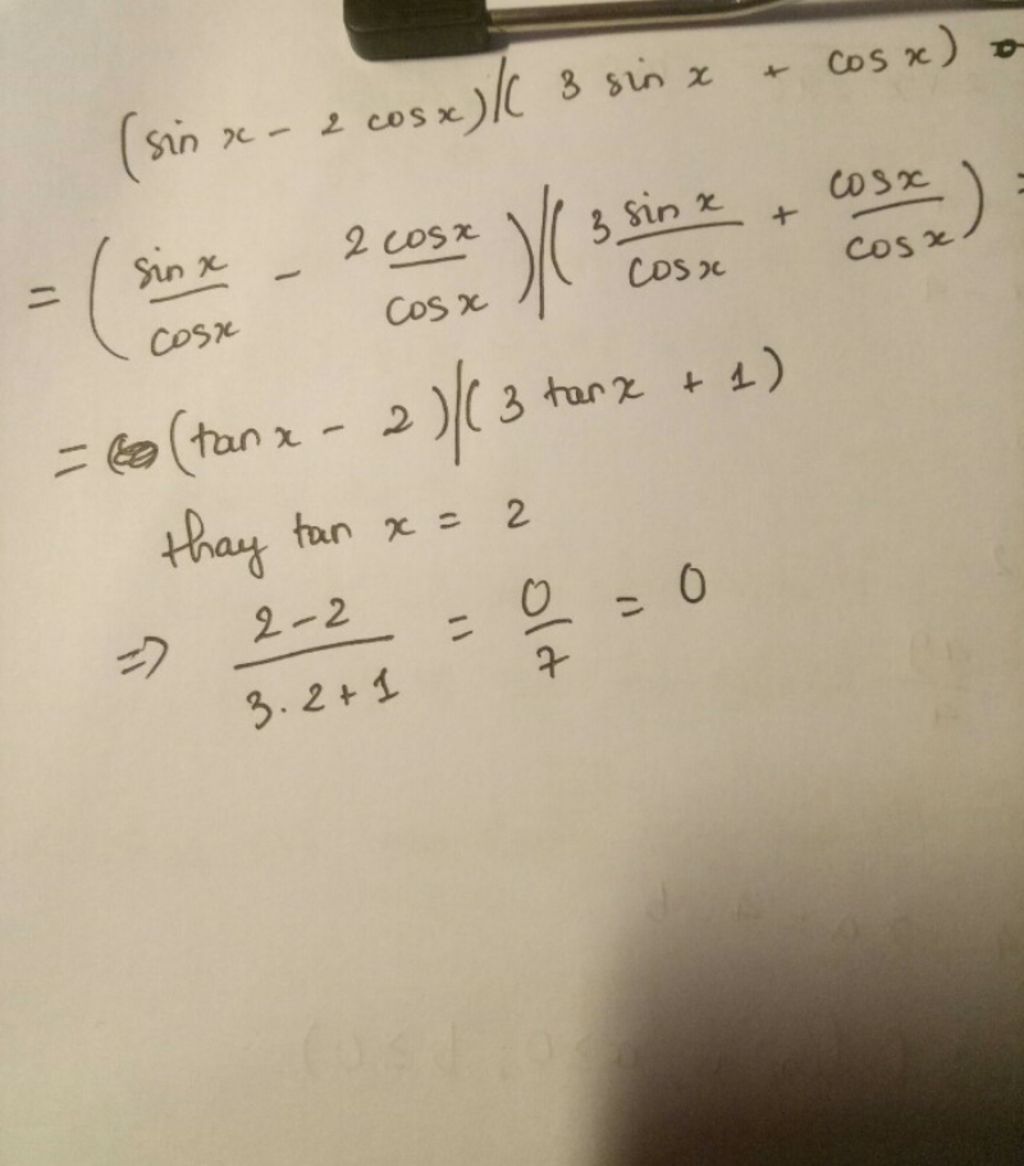 (sin x - 2 cos x)/( 3 sin x + cos x)
= ( sin x / cos x - 2 cos x / cos x )/( 3 sin x / cos x + cos x / cos x ) =
= (tan x - 2)/(3 tan x + 1)
thay tan x = 2
=> 2-2 / 3.2+1 = 0/7 = 0